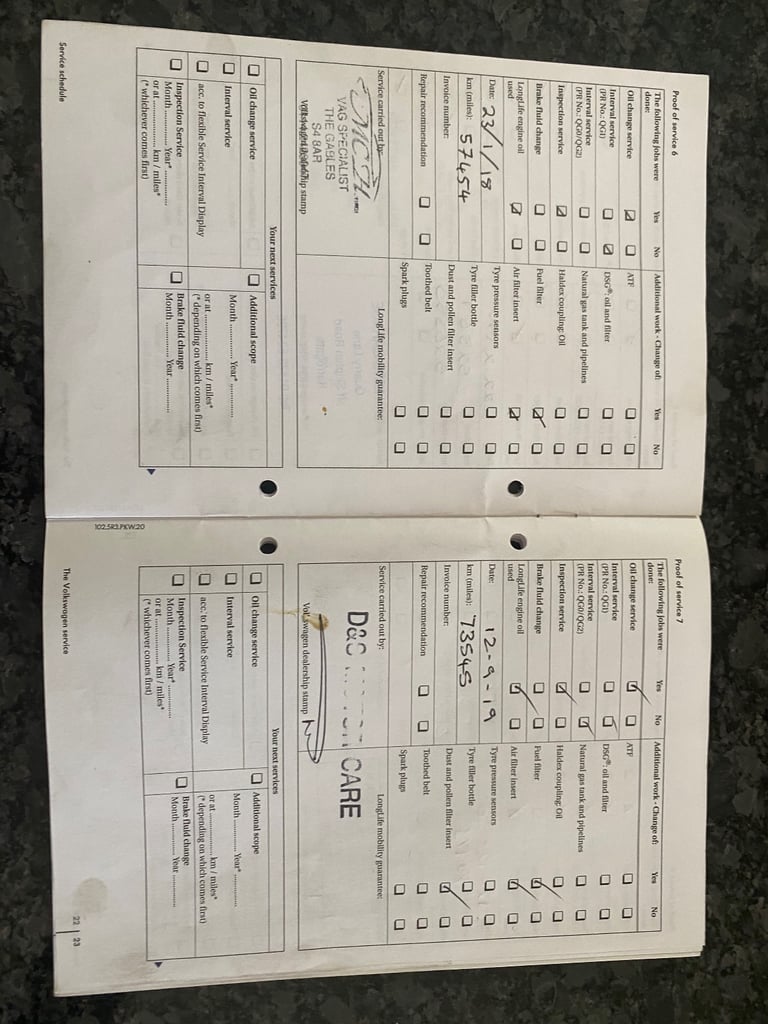 Proof of service 6
The following jobs were done: Yes No
Additional work - Change of: Yes No
Oil change service
ATF
Interval service
(PR No.: QG1)
DSG®: oil and filter
Interval service
(PR No.: QG0/QG2)
Natural gas tank and pipelines
Inspection service
Haldex coupling: Oil
Brake fluid change
Fuel filter
LongLife engine oil used
Air filter insert
Date: 23/1/18
Tyre pressure sensors
km (miles): 57454
Tyre filler bottle
Invoice number:
Dust and pollen filter insert
Repair recommendation
Toothed belt
Spark plugs
Service carried out by:
LongLife mobility guarantee:
VAG SPECIALIST
THE GABLES
S4 8AR
Volkswagen dealership stamp
Your next services
Oil change service
Additional scope
Interval service
Month ............. Year* .............
acc. to flexible Service Interval Display
or at .................... km / miles*
(* depending on which comes first)
Inspection Service
Month ............. Year* .............
or at .................... km / miles*
(* whichever comes first)
Brake fluid change
Month ............. Year .............
Service schedule
102.5R3.PKW.20
Proof of service 7
The following jobs were done: Yes No
Additional work - Change of: Yes No
Oil change service
ATF
Interval service
(PR No.: QG1)
DSG®: oil and filter
Interval service
(PR No.: QG0/QG2)
Natural gas tank and pipelines
Inspection service
Haldex coupling: Oil
Brake fluid change
Fuel filter
LongLife engine oil used
Air filter insert
Date: 12-9-19
Tyre pressure sensors
km (miles): 73545
Tyre filler bottle
Invoice number:
Dust and pollen filter insert
Repair recommendation
Toothed belt
Spark plugs
Service carried out by:
LongLife mobility guarantee:
CARE
Volkswagen dealership stamp
Your next services
Oil change service
Additional scope
Interval service
Month ............. Year* .............
acc. to flexible Service Interval Display
or at .................... km / miles*
(* depending on which comes first)
Inspection Service
Month ............. Year* .............
or at .................... km / miles*
(* whichever comes first)
Brake fluid change
Month ............. Year .............
The Volkswagen service
22 | 23